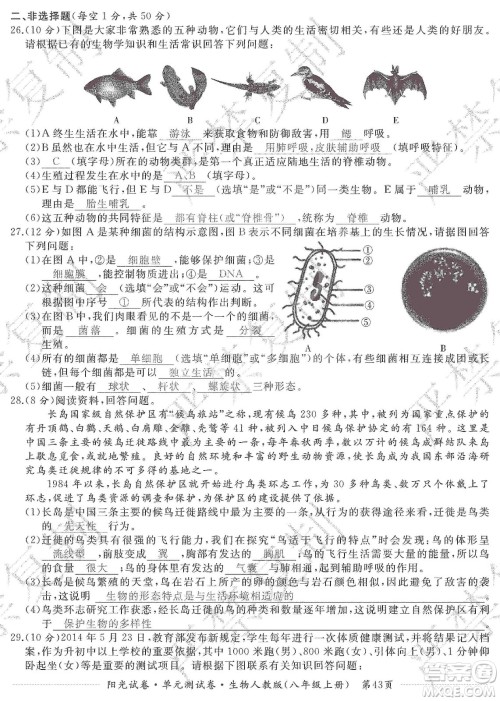 二、非选择题(每空1分,共50分)
26.(10分)下图是大家非常熟悉的五种动物,它们与人类关系非常密切,是人类的好朋友。
请根据已有的生物学知识和生活常识回答下列问题:
A B C D E
(1)A终生生活在水中,能靠 游泳 来获取食物和防御敌害,用 鳃 呼吸。
(2)B虽然也能生活在水中,但它不是鱼,它的呼吸特点是 用肺呼吸,皮肤辅助呼吸 。
(3) C (填字母)所在的动物类群,是真正适应陆地生活的脊椎动物。
(4)生殖过程发生在水中的是 A、B (填字母)。
(5)E与D一样都能飞行,但E 不是 (选填“是”或“不是”)一种鸟类。E属于 哺乳 动物,
理由是 胎生哺乳 。
(6)这五种动物的共同特征是 都有脊柱(或“脊椎骨”) (选填“是”或“不是”)
27.(12分)如图A是某种细菌的结构示意图,图B表示不同细菌在培养基上的生长情况。请据图回答
下列问题:
(1)在图A中,①是 细胞壁 ,能保护细菌;③是
细胞膜 ,能控制物质进出;④是 DNA 。
(2)这种细菌 会 (选填“会”或“不会”)运动,理由
是图中⑤所示 鞭毛 。
(3)在图B中,我们肉眼看见的不同形态的东西,实
则是 菌落 。细菌的生殖方式是 分裂
生殖。
① ② ③ ④ ⑤
A B
(4)所有的细菌都是 单细胞 (选填“单细胞”或“多细胞”)的个体,但有些细菌也会相互连接成团或长
链,但每个细菌也是独立生活的。
(5)细菌一般可以分为 球状 、 杆状 、 螺旋状 等类型。
28.(8分)阅读资料,回答问题。
长岛国家级自然保护区有“候鸟旅站”之称,现有候鸟230多种,其中属国家一级保护的有金
雕、白肩雕等9种,二级保护的有大天鹅、秃鹫等41种,列入中日候鸟保护协定的有164种。这里
地处东部候鸟迁徙路线中部主要通道上,过往停歇的候鸟数量庞大,因此成为我国东部沿海研究
候鸟迁徙规律的不可多得的优良环志场所。
1984年以来,长岛自然保护区将鸟类环志系列化,迄今为止,30多万只候鸟从这里戴上了
环志,促进了鸟类资源的调查和保护。请回答以下问题:
(1)长岛是三大候鸟迁徙路线中最东端的迁徙路线的中间站,候鸟的迁徙是动物的行为之一,属于
先天性 行为。
(2)迁徙的鸟类都具有很强的飞行能力,我们在交流“鸟适于飞行的特点”时会谈到:外部形态呈
流线型 ,前肢变成 翼 ;与飞翔生活相适应,鸟类最发达的肌肉是 胸肌 ;鸟类每天
的食量 很大 ,为飞行提供大量的能量来源。
(3)观察中我们发现,在岩石附近生活的鸟,鸟蛋在岩石上所形成的伪装,可以保护鸟蛋不受敌害的袭
击,这说明 生物的形态特点是与生活环境相适应的 。
(4)鸟类环志研究的开展,对于掌握候鸟的迁徙规律,保护鸟类资源具有重要意义,同时它还有利于
保护生物的多样性 。
29.(10分)2014年5月23日,教育部发布新规定,学生每年进行一次体质健康测试,并将成绩作为毕业
升入上一学校的重要依据。初中生的项目包括坐位体前屈、引体向上(男)/仰卧起坐(女)、1分钟仰
卧起坐或者立定跳远的测试项目。请据图回答问题:
阳光试卷·单元测试卷·生物人教版(八年级上册) 第43页